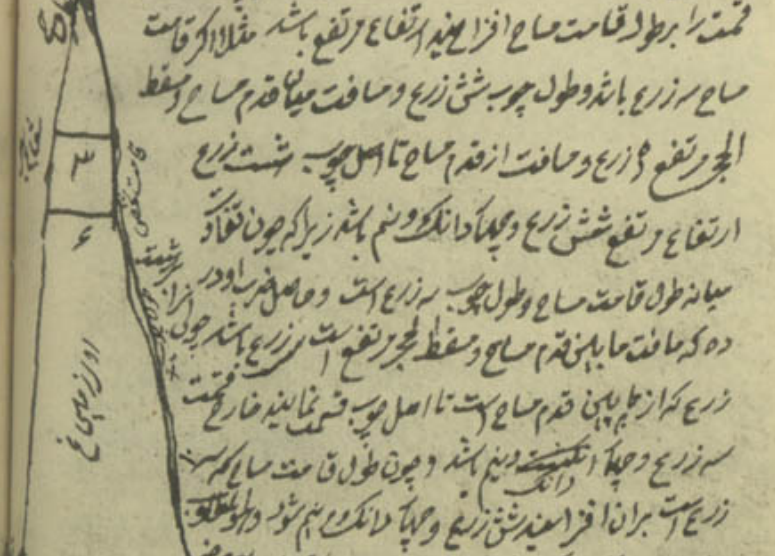 قسمت را بر طول قامت مساح افزایند ارتفاع مرتفع باشد مثلا اگر قامت
مساح سه زرع باشد و طول چوب شش زرع و مسافت میان قدم مساح و مسقط
الحجر مرتفع ده زرع و مسافت از قدم مساح تا اصل چوب هشت زرع
ارتفاع مرتفع شش زرع و چهار دانک و نیم باشد زیرا که چون تفاوت
میانه طول قامت مساح و طول چوب سه زرع است و حاصل ضرب او در
ده که مسافت مابین قدم مساح و مسقط الحجر مرتفع است سی زرع باشد چون
زرع که از مابین قدم مساح است تا اصل چوب قسمت نمایند خارج قسمت
سه زرع و چهار دانک و نیم باشد و چون طول قامت مساح که سه
زرع است بران افزایند شش زرع و چهار دانک و نیم شود و هو المطلوب
۳
۶